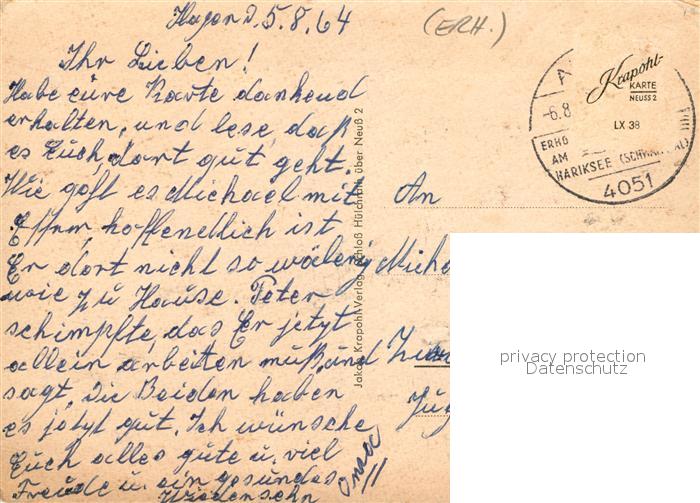 Hagen d. 5.8.64
(ERH.)
Ihr Lieben!
Habe eure Karte dankend
erhalten, und lese, daß
es Euch, dort gut geht.
Wie geht es Michael mit
Essen, hoffendlich ist
Er dort nicht so wälerig
wie zu Hause. Peter
schimpfte, das Er jetzt
allein arbeiten muß, und
sagt, Die Beiden haben
es jetzt gut. Ich wünsche
Euch alles gute u. viel
Freude u. ein gesundes
Wiedersehn
Jakob Krapohl-Verlag, Schloß Hülchrath über Neuß 2
Krapohl-
KARTE
NEUSS 2
LX 38
-6.8
AM
HARIKSEE (SCHWALMTAL)
4051
An
privacy protection
Datenschutz